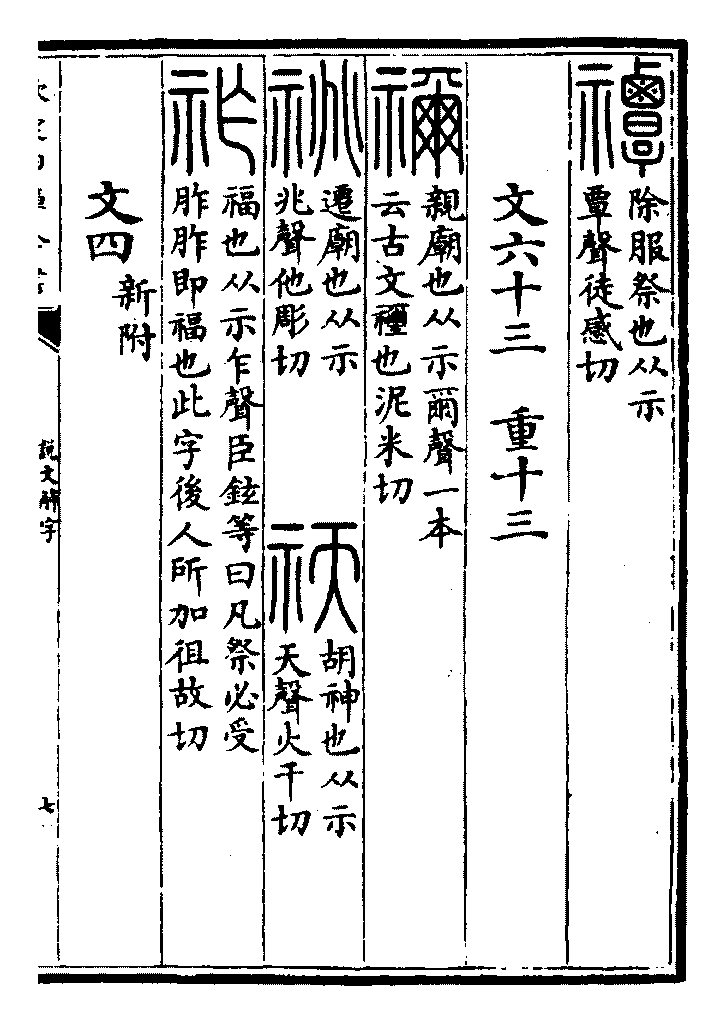 禫
除服祭也从示
覃聲徒感切
文六十三　重十三
禰
親廟也从示爾聲一本
云古文禋也泥米切
祧
遷廟也从示
兆聲他彫切
祆
胡神也从示
天聲火千切
祚
福也从示乍聲臣鉉等曰凡祭必受
胙胙即福也此字後人所加徂故切
文四
新附
說文解字
七